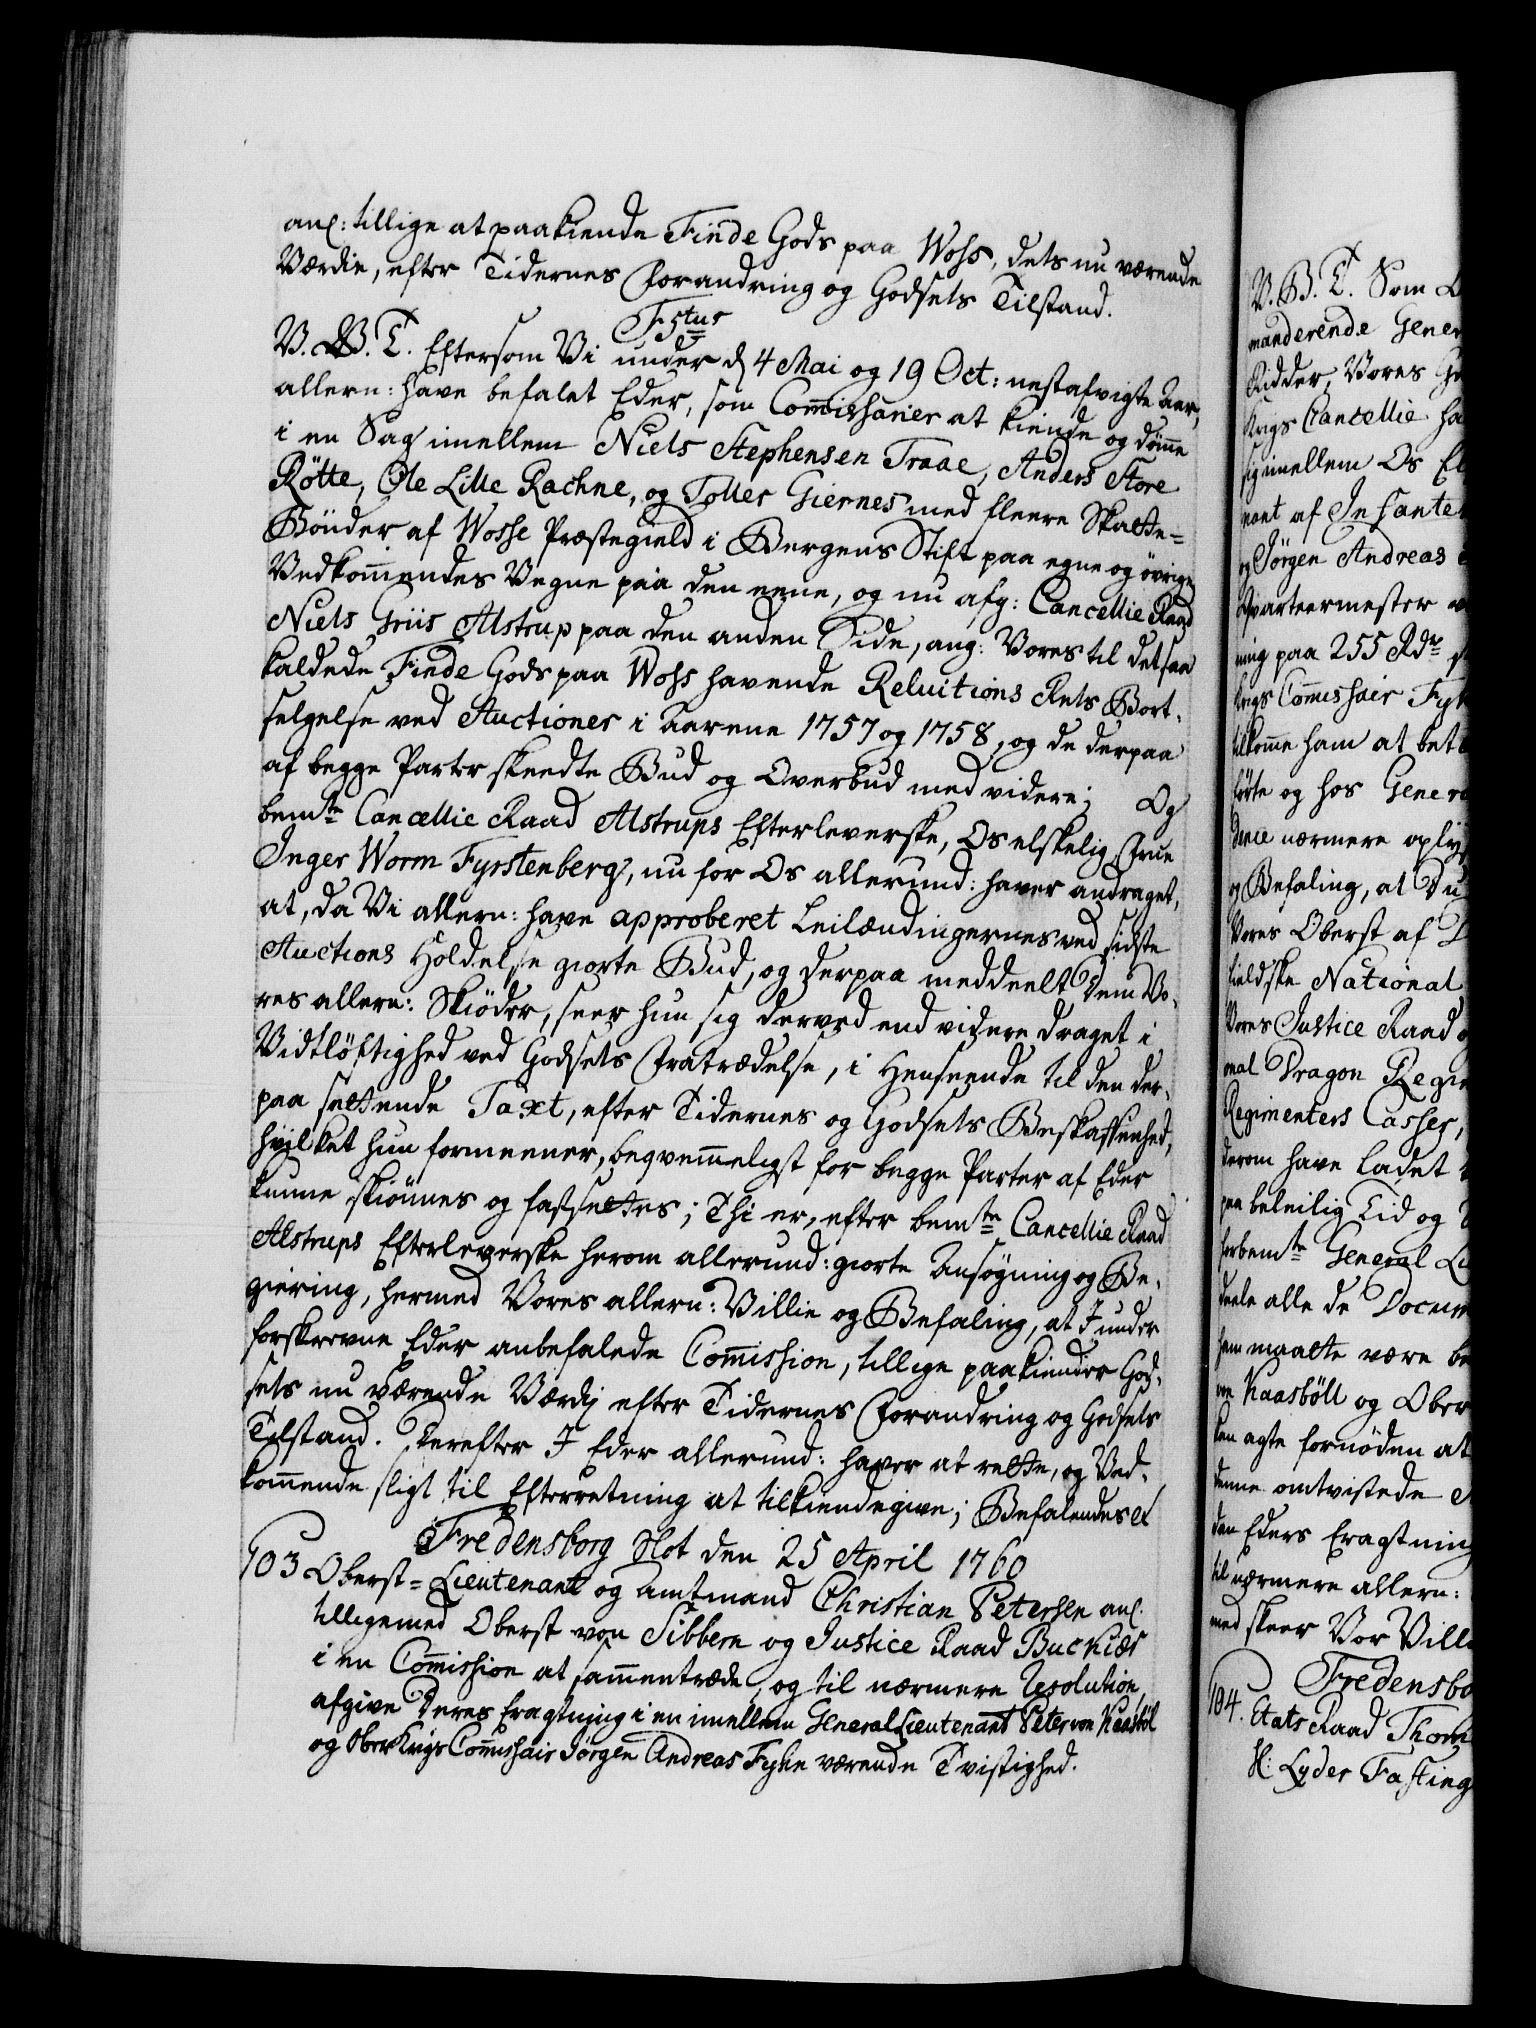 anl: tillige at paakiende Finde Gods paa Wohs, dets nu værende
Værdie, efter Tidernes Forandring og Godsets Tilstand.
F5tus
V. G. T. Eftersom Vi under d 4 Mai og 19 Oct: nestafvigte Aar,
allern: have befalet Eder, som Commissarier at kiende og dømme
i en Sag imellem Niels Stephensen Traae, Anders Store
Rötte, Ole Lille Rachne, og Tolles Giernes med fleere Skatte=
Bönder af Wosse Præstegield i Bergens Stift paa egne og øvrige
Vedkommendes Vegne paa den eene, og nu afg: Cancellie Raad
Niels Griis Alstrup paa den anden Side, ang: Vores til det saa
kaldede Finde Gods paa Wohs havende Reluitions Rets Bort-
selgelse ved Auctioner i Aarene 1757 og 1758, og de derpaa
af begge Parter skeedte Bud og Overbud med videre; Og
bemte Cancellie Raad Alstrups Efterleverske, Os elskelig Frue
Inger Worm Fyrstenberg, nu for Os allerund: haver andraget,
at, da Vi allern: have approberet Leilændingernes ved sidste
Auctions Holdelse giorte Bud, og derpaa meddeelt Dem Vo-
res allern: Skiøder, seer hun sig derved end videre draget i
Vidtløftighed ved Godsets Fratrædelse, i Henseende til den der-
paa settende Taxt, efter Tidernes og Godsets Beskaffenhed,
hvilket hun formeener, beqvemmeligst for begge Parter af Eder
kunne skiønnes og fastsettes; Thi er, efter bemte Cancellie Raad
Alstrups Efterleverske herom allerund: giorte Ansøgning og Be-
giering, hermed Vores allern: Villie og Befaling, at I under
forskrevne Eder anbefalede Commission, tillige paakiender God-
sets nu værende Værdj efter Tidernes Forandring og Godsets
Tilstand. Derefter I Eder allerund: haver at rette, og Ved-
kommende sligt til Efterretning at tilkiendegive; Befalendes &
Fredensborg Slot den 25 April 1760
103 Oberst=Lieutenant og Amtmand Christian Petersen anl.
tilligemed Oberst von Sibbern og Justice Raad Buchiær
i en Commission at sammentræde, og til nærmere Resolution,
afgive Deres Eragtning i en imellem General Lieutenant Peter von Kaasböl
og Ober Krigs Commissair Jörgen Andreas Fyhn værende Tvistighed.
V. G. T. Som
manderende Gener
Ridder, Vores
Krigs Cancellie ha
sig imellem Os El
nant af Infante
og Jörgen Andreas
Qvarteermester
ning paa 255 Rdr
Krigs Commissair Fyh
tilkomme ham at bet
førte og hos Genera
dence nærmere oply
og Befaling, at Du
Vores Oberst af
fieldske National
Vores Justice Raad o
nal Dragon Regi
Regimenters Casser,
derom have ladet
paa beleilig Tid og
forbemte General Li
deele alle de Docum
ham maatte være be
von Kaasböll og Ober
kan agte fornøden at
denne omtvistede
den Eders Eragtning
til nærmere allern:
med skeer Vor Vill
Fredensbo
104. Etats Raad Thom
H: Lyder Fasting